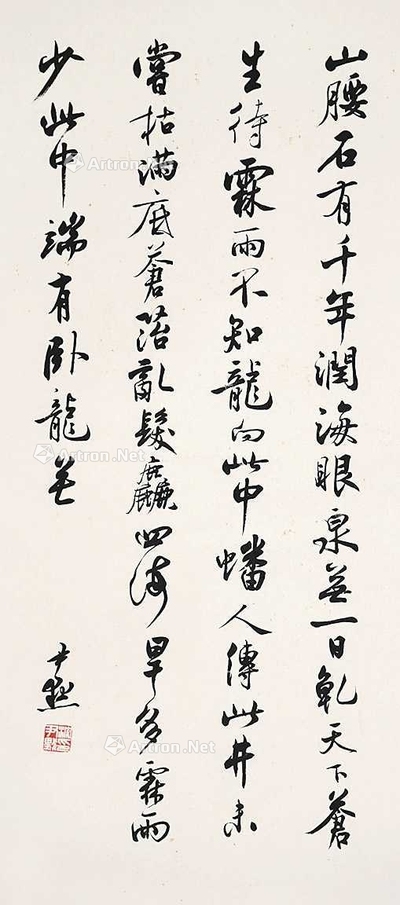 山腰石有千年潤海眼泉無一日乾天下蒼
生待霖雨不知龍向此中蟠人傳此井未
嘗枯滿底蒼苔亂髮麤四海旱多霖雨
少此中端有卧龍無
尹默
Artron.Net
Artron.Net
Artron.Net
Artron.Net